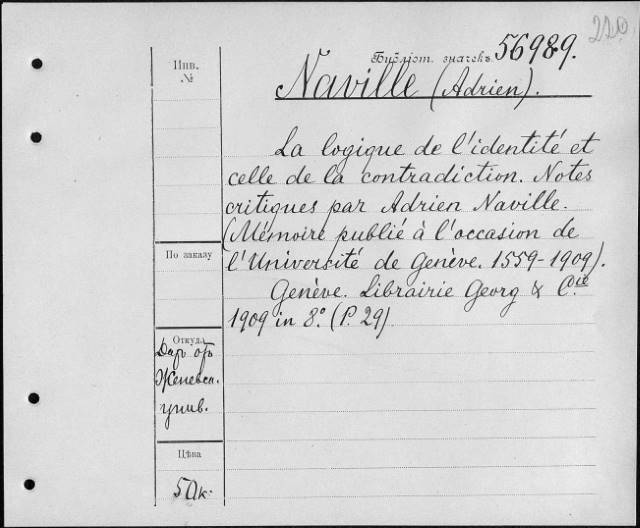 220
Библіот. значекъ 56989.
Инв.
№
Naville (Adrien).
La logique de l'identité et
celle de la contradiction. Notes
critiques par Adrien Naville.
(Mémoire publié à l'occasion de
l'Université de Genève. 1559-1909).
Genève. Librairie Georg & Cie
1909 in 8º. (P. 29)
По заказу
Откуда
Дар от
Женевск.
унив.
Цѣна
50к.